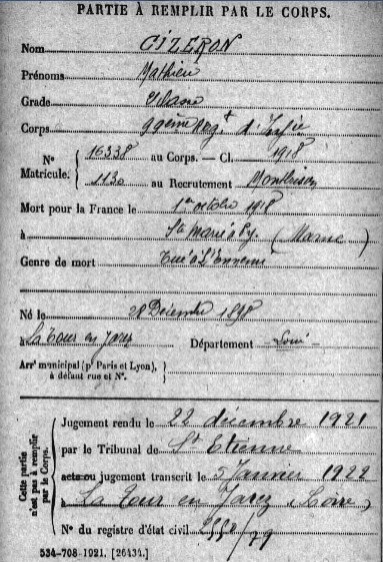 PARTIE À REMPLIR PAR LE CORPS.
Nom CIZERON
Prénoms Mathieu
Grade 2e classe
Corps 99ème Regt d'Infie
Nos Matricule. { 16338 au Corps. — Cl. 1918
1130 au Recrutement Montbrison
Mort pour la France le 1er octobre 1918
à Ste Marie à Py (Marne)
Genre de mort Tué à l'Ennemi
Né le 28 Décembre 1898
à La Tour en Jarez Département Loire
Arrt municipal (pr Paris et Lyon), à défaut rue et No.
Cette partie n'est pas à remplir par le Corps.
Jugement rendu le 22 décembre 1921
par le Tribunal de St Etienne
acte ou jugement transcrit le 5 Janvier 1922
à La Tour en Jarez (Loire)
No du registre d'état civil
534-708-1921. [26434.]